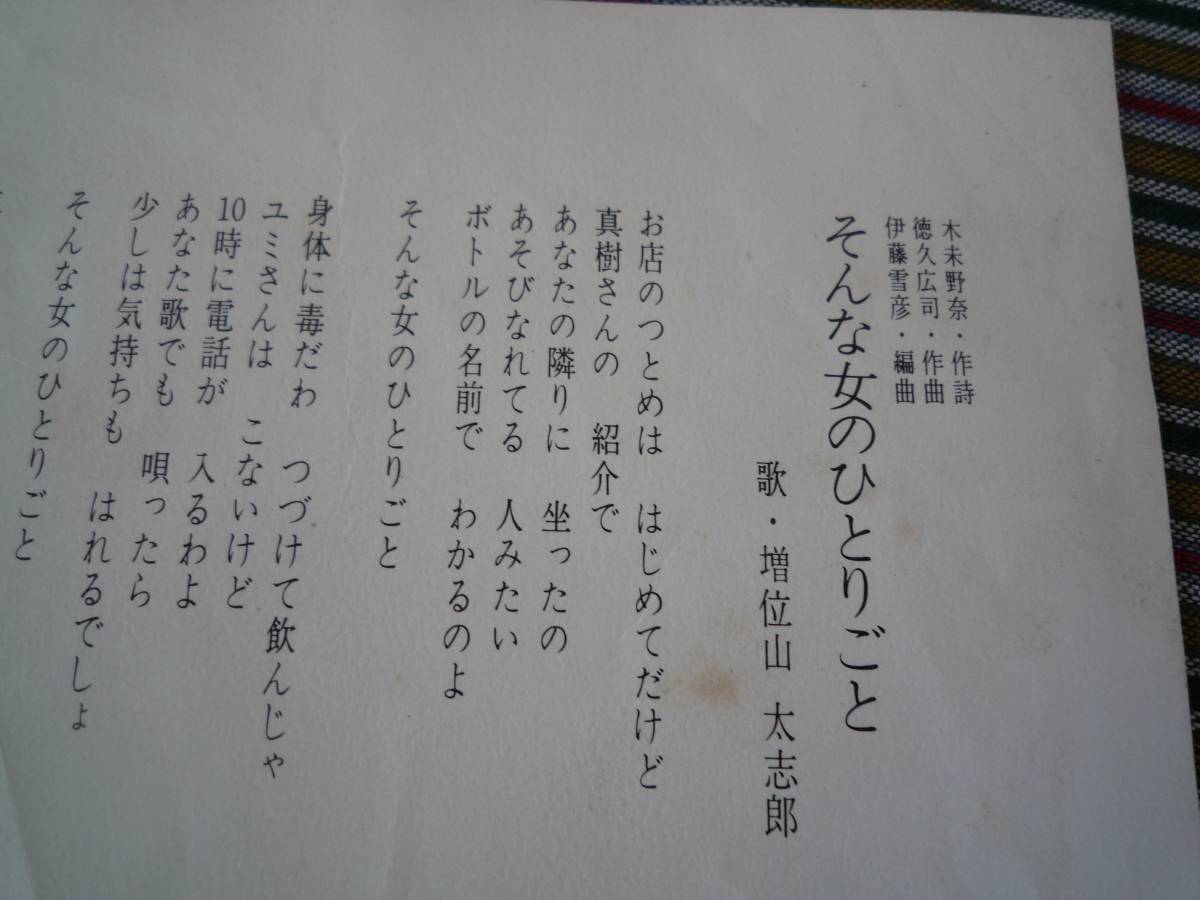 木未野奈・作詩
徳久広司・作曲
伊藤雪彦・編曲
そんな女のひとりごと
歌・増位山 太志郎
お店のつとめは はじめてだけど
真樹さんの 紹介で
あなたの隣りに 坐ったの
あそびなれてる 人みたい
ボトルの名前で わかるのよ
そんな女のひとりごと
身体に毒だわ つづけて飲んじゃ
ユミさんは こないけど
10時に電話が 入るわよ
あなた歌でも 唄ったら
少しは気持ちも はれるでしょ
そんな女のひとりごと